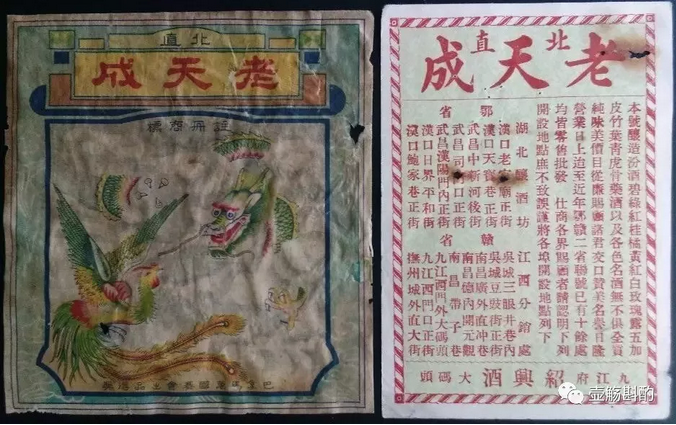 北直
老天成
註冊商標
北直
老天成
本號釀造汾酒碧綠紅桂橘黃紅白玫瑰露五加
皮竹葉青虎骨藥酒以及各色名酒無不俱全貨
純味美價目從廉賜顧諸君交口贊美名譽日隆
營業日上迨至近年鄂贛二省聯號已有十餘處
均皆零售批發 仕商各界賜顧者請認明下列
開設地點庶不致誤謹將各埠開設地點列下
鄂省
湖北釀酒坊
漢口老官廟正街
漢口天寶巷正街
武昌中新河後街
武昌司門口正街
武昌漢陽門內正街
漢口日界平和街
漢口鮑家巷正街
贛省
江西分銷處
吳城三眼井巷內
吳城豆豉街正街
南昌廣外直冲巷
南昌德內開元觀
南昌帶子巷
九江西門外大碼頭
九江西門口正街
撫州城外直大街
九江府紹興酒大碼頭
壶觞斟酌